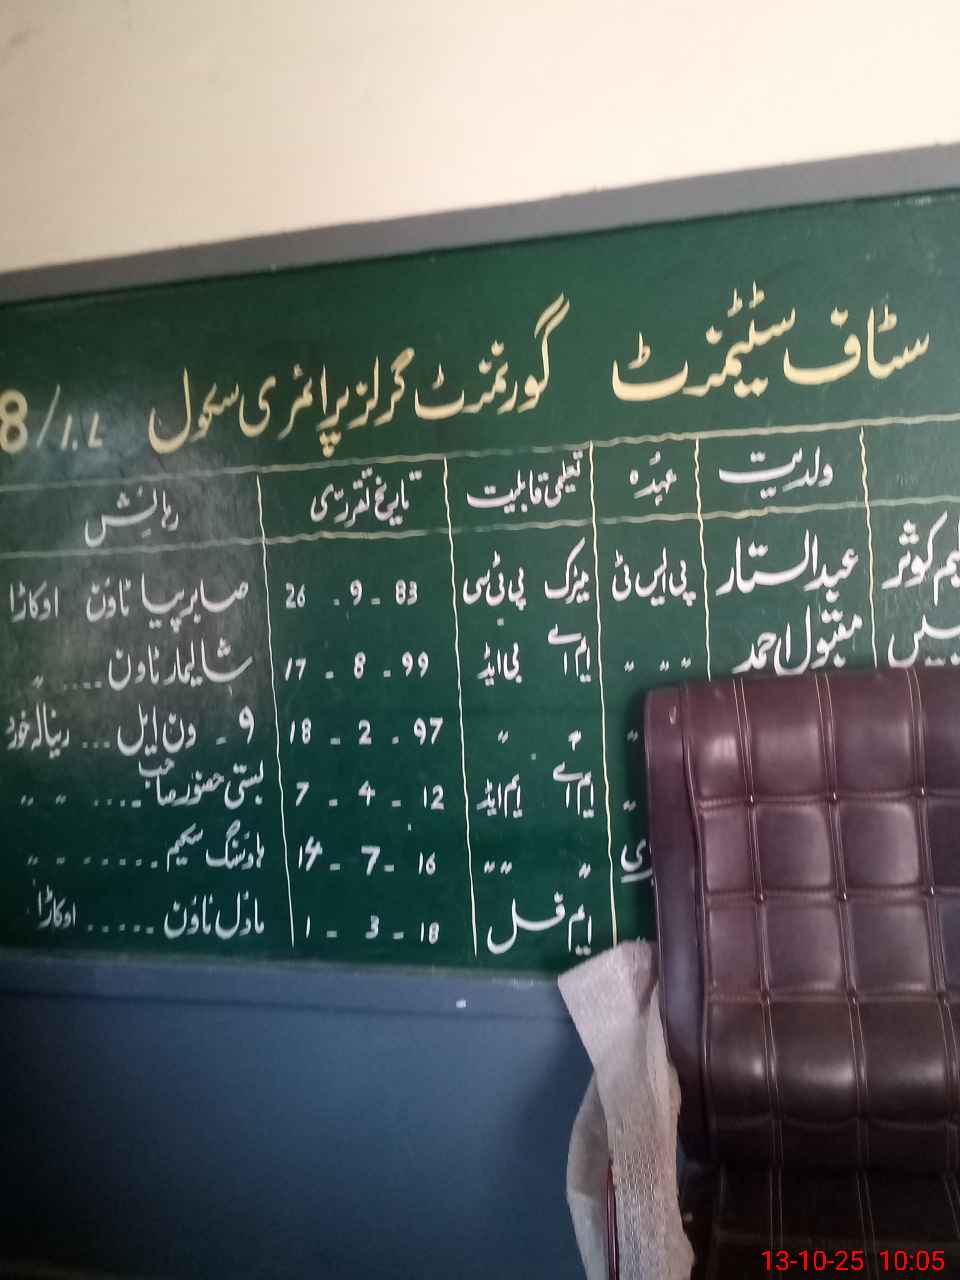 سٹاف سٹیٹمنٹ گورنمنٹ گرلز پرائمری سکول 8/1.L
ولدیت عہدہ تعلیمی قابلیت تاریخ تقرری رہائش
کوثر عبدالستار پی ایس ٹی میٹرک پی ٹی سی 26 - 9 - 83 صابر پیا ٹاؤن اوکاڑا
مقبول احمد " " " ایم اے بی ایڈ 17 - 8 - 99 شالیمار ٹاؤن .... "
" " " 18 - 2 - 97 9 - ون ایل ... رینالہ خورد
" ایم اے ایم ایڈ 7 - 4 - 12 بستی حضور صاحب .... " "
" " " 14 - 7 - 16 ہاؤسنگ سکیم ...... " "
ایم فل 1 - 3 - 18 ماڈل ٹاؤن ..... اوکاڑا
13-10-25 10:05